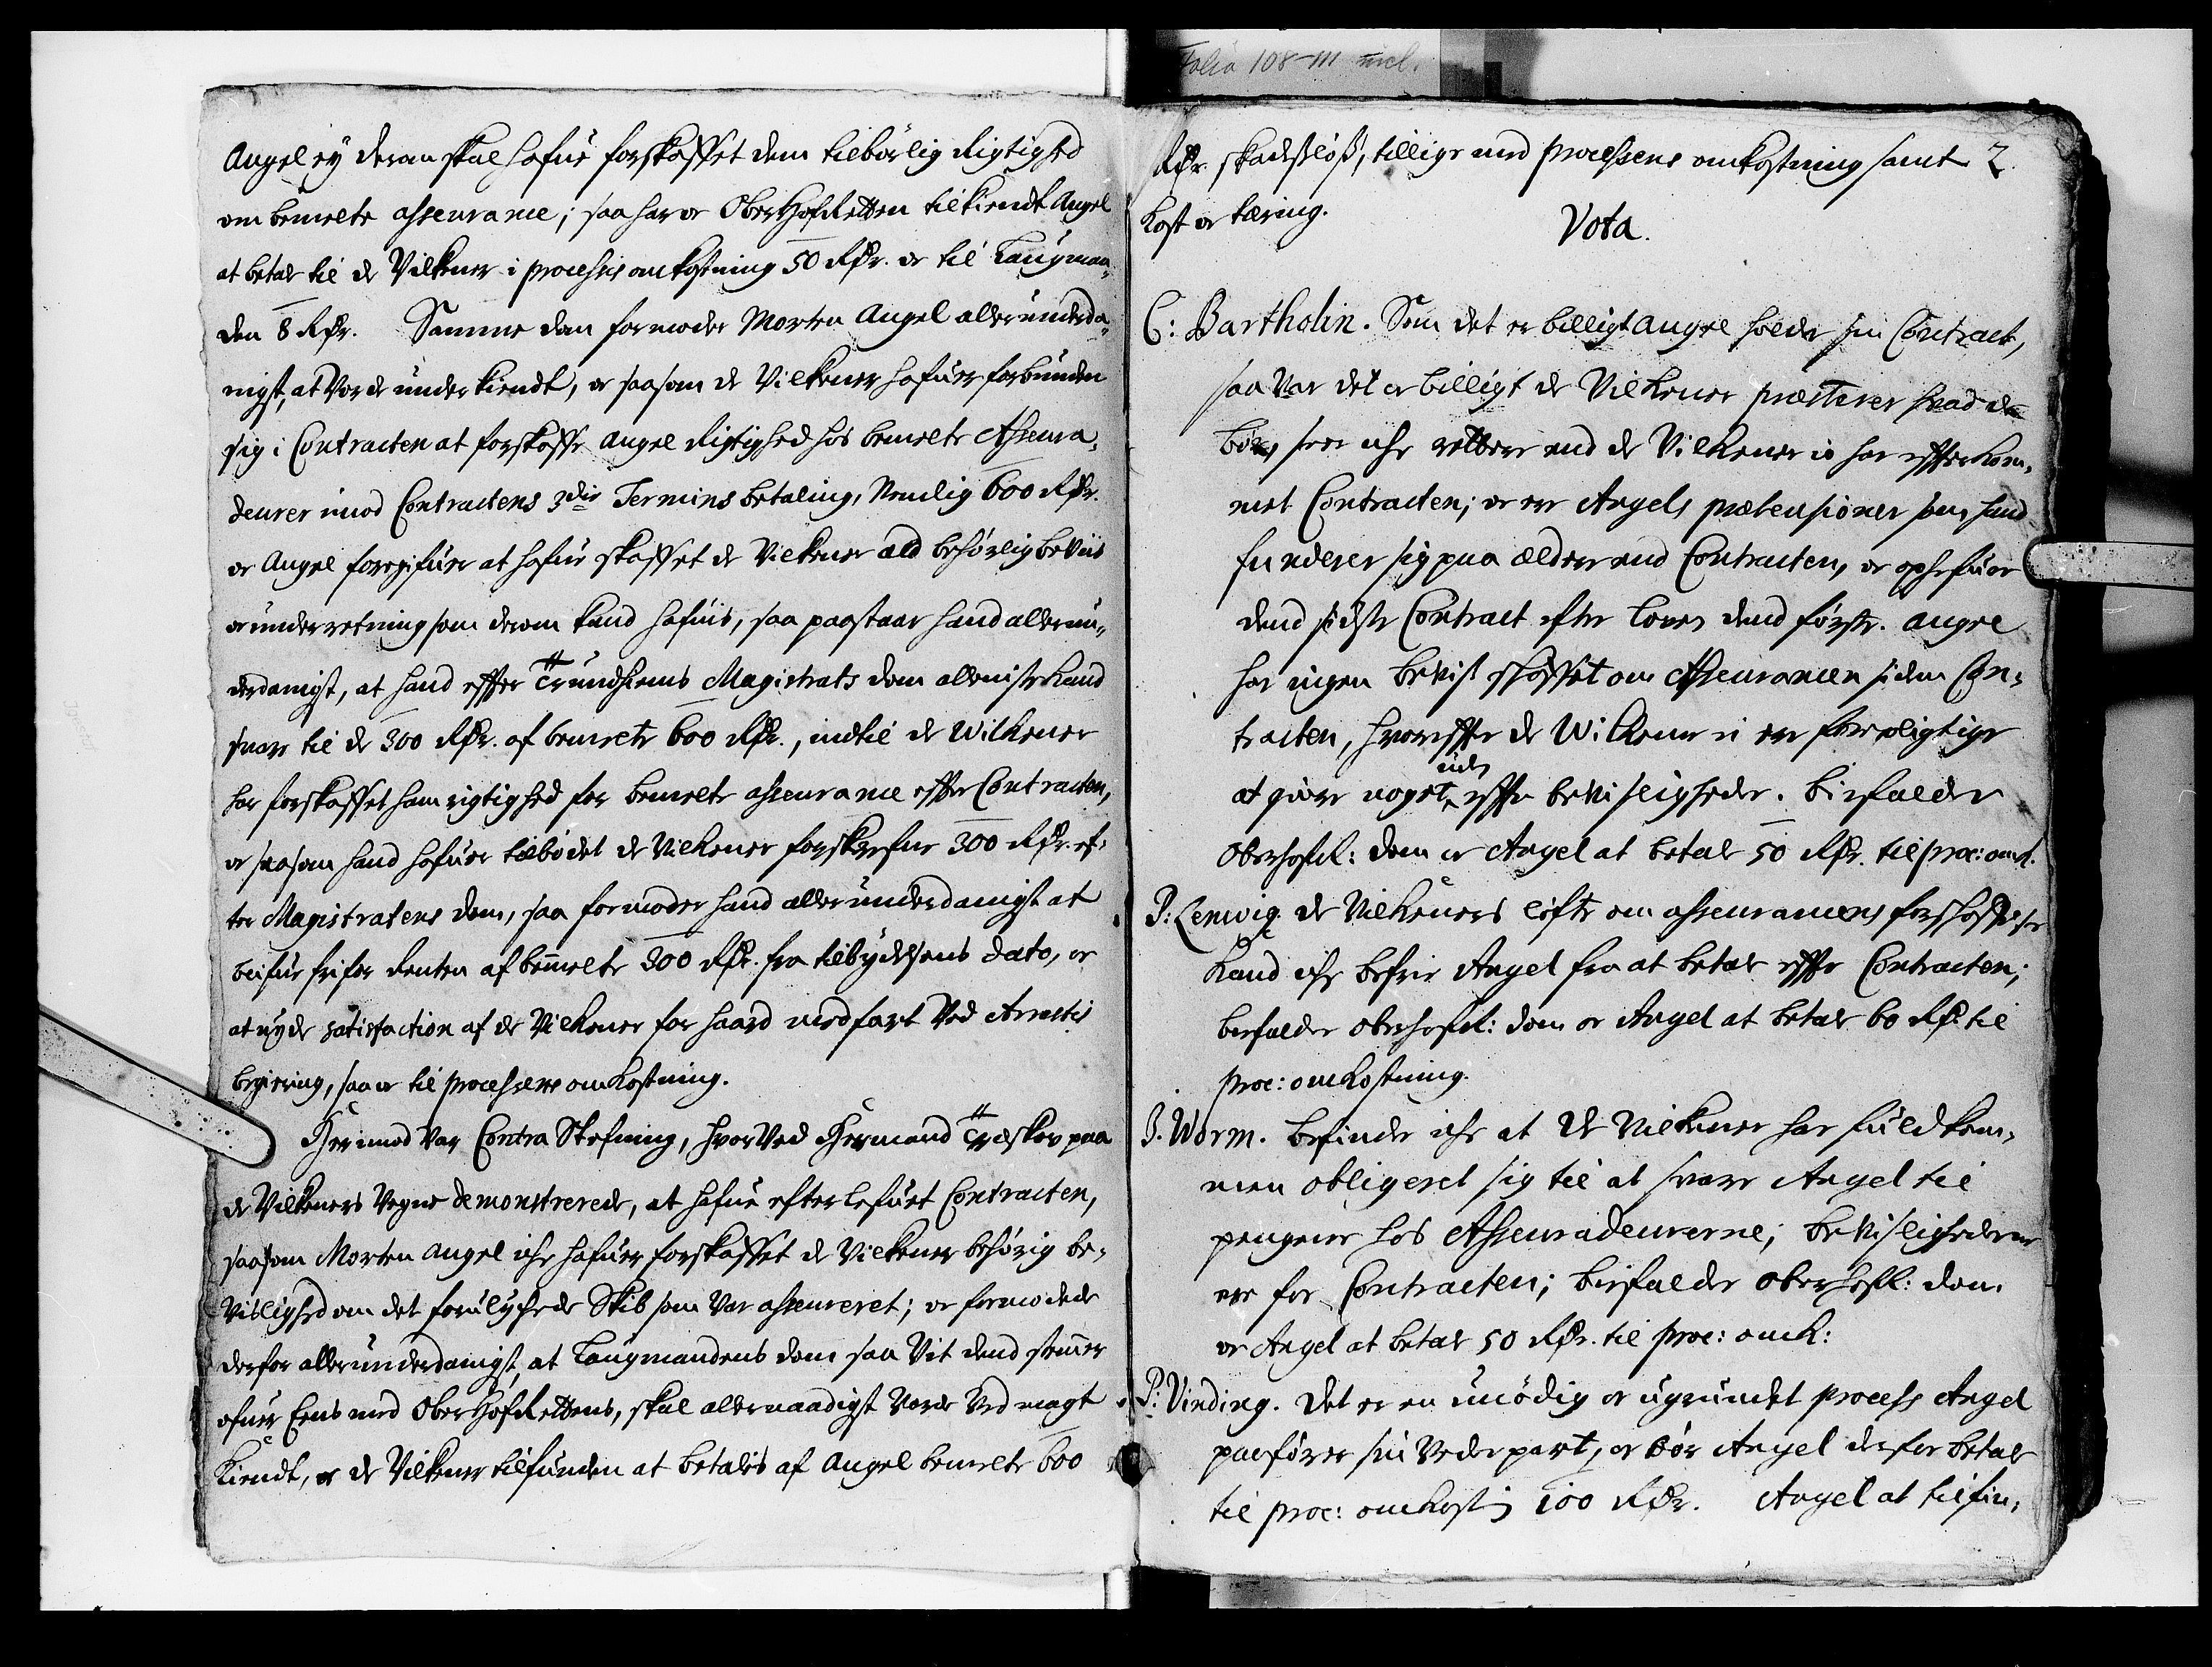 Folio 108-111 incl.
Angel ey deran skal hafue forskaffet dem tilbørlig Rigtighed
om bemelte asseurance; saa har oc OberHofRetten tilkiendt Angel
at betale til de Vilkener i processis omkostning 50 Rdr. oc til Laugman-
den 8 Rdr. Samme dom formoder Morten Angel allerunderda-
nigst, at Vorde underkiendt, oc saasom de Vilkener hafuer forbunden
sig i Contracten at forskaffe Angel Rigtighed hos bemelte Asseura-
deurer imod Contractens 3die Termins betaling, Nemlig 600 Rdr.
oc Angel foregifuer at hafue skaffet de Vilkener all behørlig beviis
oc underretning som derom kand hafuis, saa paastaar hand allerun-
derdanigst, at hand effter Trundhiems Magistrats dom allenist kand
svare til de 300 Rdr. af bemelte 600 Rdr., indtil de Wilkener
har forskaffet ham rigtighed for bemelte asseurance effter Contracten,
oc saasom hand hafuer tilbødet de Vilkener forskrefne 300 Rdr. ef-
ter Magistratens dom, saa formoder hand allerunderdanigst at
blifue fri for Renten af bemelte 300 Rdr. fra tilbydelsens dato, oc
at nyde satisfaction af de Vilkener for haard medfart Ved Arrestis
begiering, saa oc til processens omkostning.
Herimod Var Contra Stefning, hvorVed Hermand Treschov paa
de Vilkeners Vegne demonstrerede, at hafue efterlefuet Contracten,
saasom Morten Angel iche hafuer forskaffet de Vilkener behørig be-
Vislighed om det forulychede Skib som Var asseureret; oc formodede
derfor allerunderdanigst, at Laugmandens dom saa Vit dend stemmer
ofuer Eens med OberHofRettens, skal allernaadigst Vorde Ved magt
Kiendt, oc de Vilkener tilfunden at betalis af Angel bemelte 600
Rdr. skadesløs, tillige med processens omkostning samt 2
Kost oc tæring.
Vota.
C: Bartholin. Som det er billigt Angel holder sin Contract,
saa Var det oc billigt de Vilkener præsterer hvad de
bør, seer iche rettere end de Vilkener io har effterkom-
met Contracten; oc er Angels prætensioner som hand
funderer sig paa ældere end Contracten, oc ophefuer
dend sidste Contract efter loven dend første. Angel
har ingen bevis skaffet om Asseurancen siden Con-
tracten, hvoreffter de Wilkener ei ere forpligtige
at giøre noget uden effter bevisligheder. bifalder
OberhofR: dom oc Angel at betale 50 Rdr. til proc: omk.
P: Lemvig. de Vilkeners løfte om asseurancens forskaffelse
Kand iche befrie Angel fra at betale effter Contracten;
bifalder OberhofR: dom oc Angel at betale 60 Rdr til
proc: omkostning.
B. Worm. befinder iche at de Vilkener har fuldkom-
men obligeret sig til at svare Angel til
pengene hos Asseuradeurerne; bevislighederne
ere for Contracten; bifalder OberhofR: dom
oc Angel at betale 50 Rdr. til proc: omk:
P: Vinding. Det er en unødig oc ugrundet process Angel
paafører sin Vederpart, oc bør Angel derfor betale
til proc: omkost: 100 Rdr. Angel at tilfin-